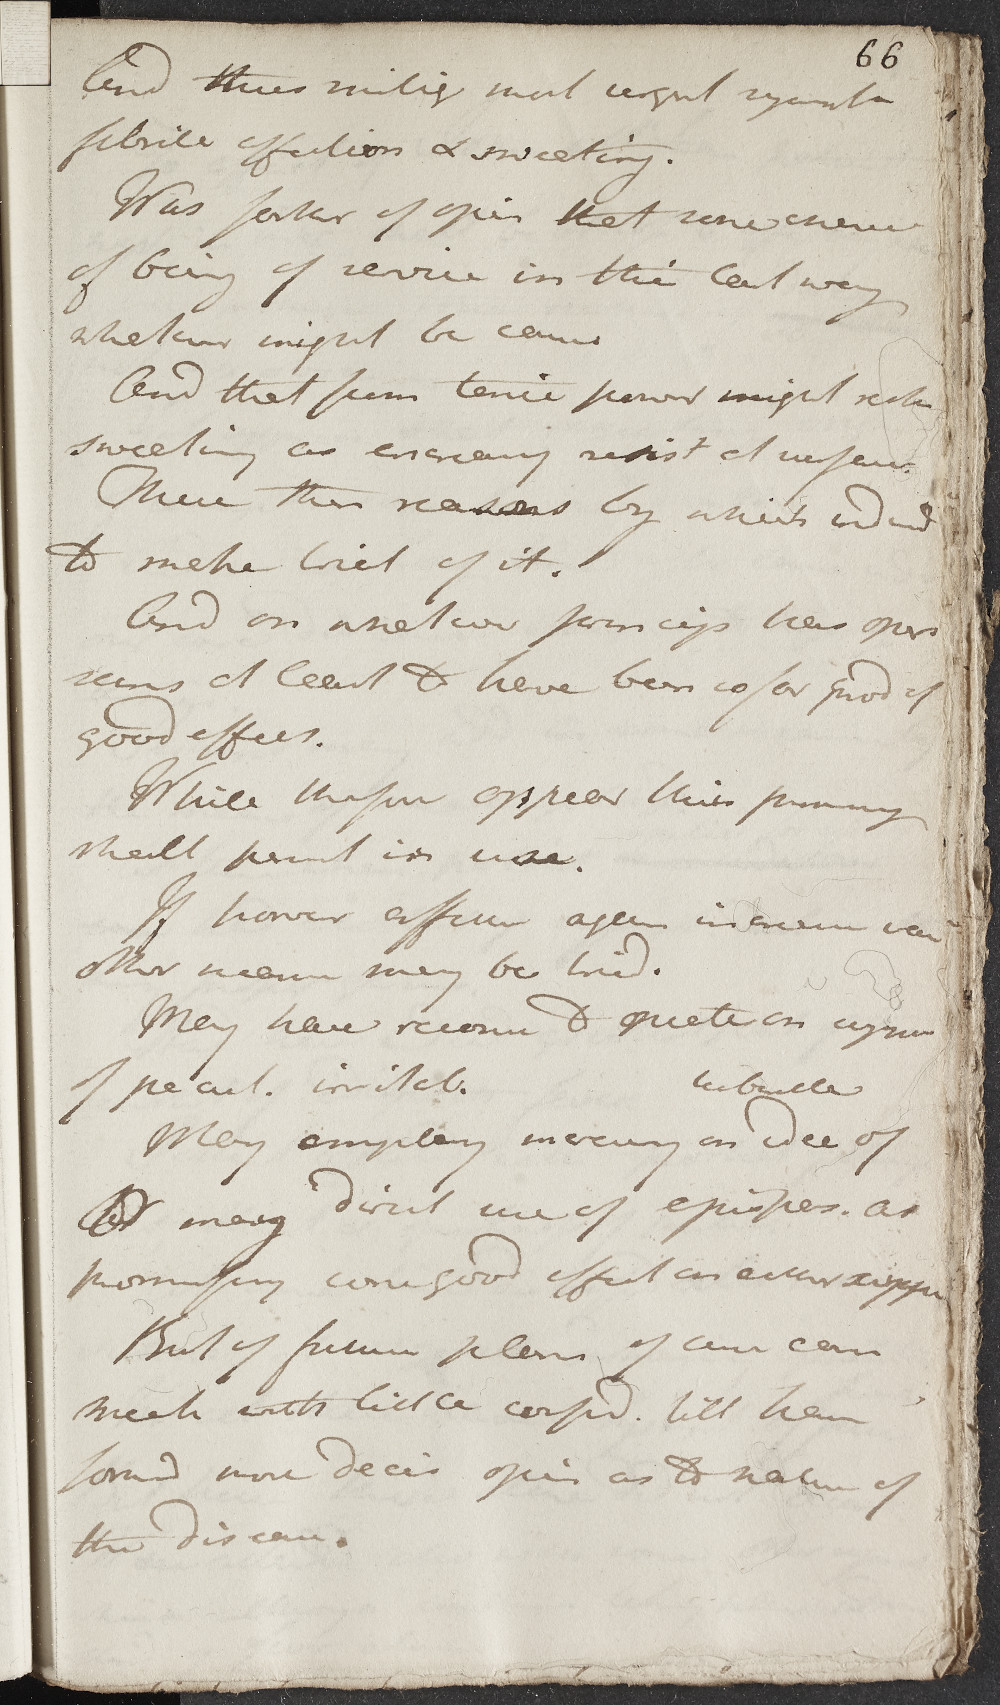 66
And thus mitig most urgent sympt
febrile affection & sweeting.
Was farther of opin that some chance
of being of service in this last way
whatever might be cause
And that from tonic power might rest
sweeting as
These then reasons by which induc'd
to make trial of it.
And on whatever princip has oper
seems at least to have been so far prod of
good effects.
While therefore appear thus promising
shall persist in use.
If however affection again increase
other means may be tried.
May have recourse to
of pecul. irritab.
tubercle
May employ mercury on idea of
Or may direct use of epispas. as
promising some good effect on either suppos
But of future plans of cure can
speak with little confid. till have
form'd more decis opin as to nature of
the disease.